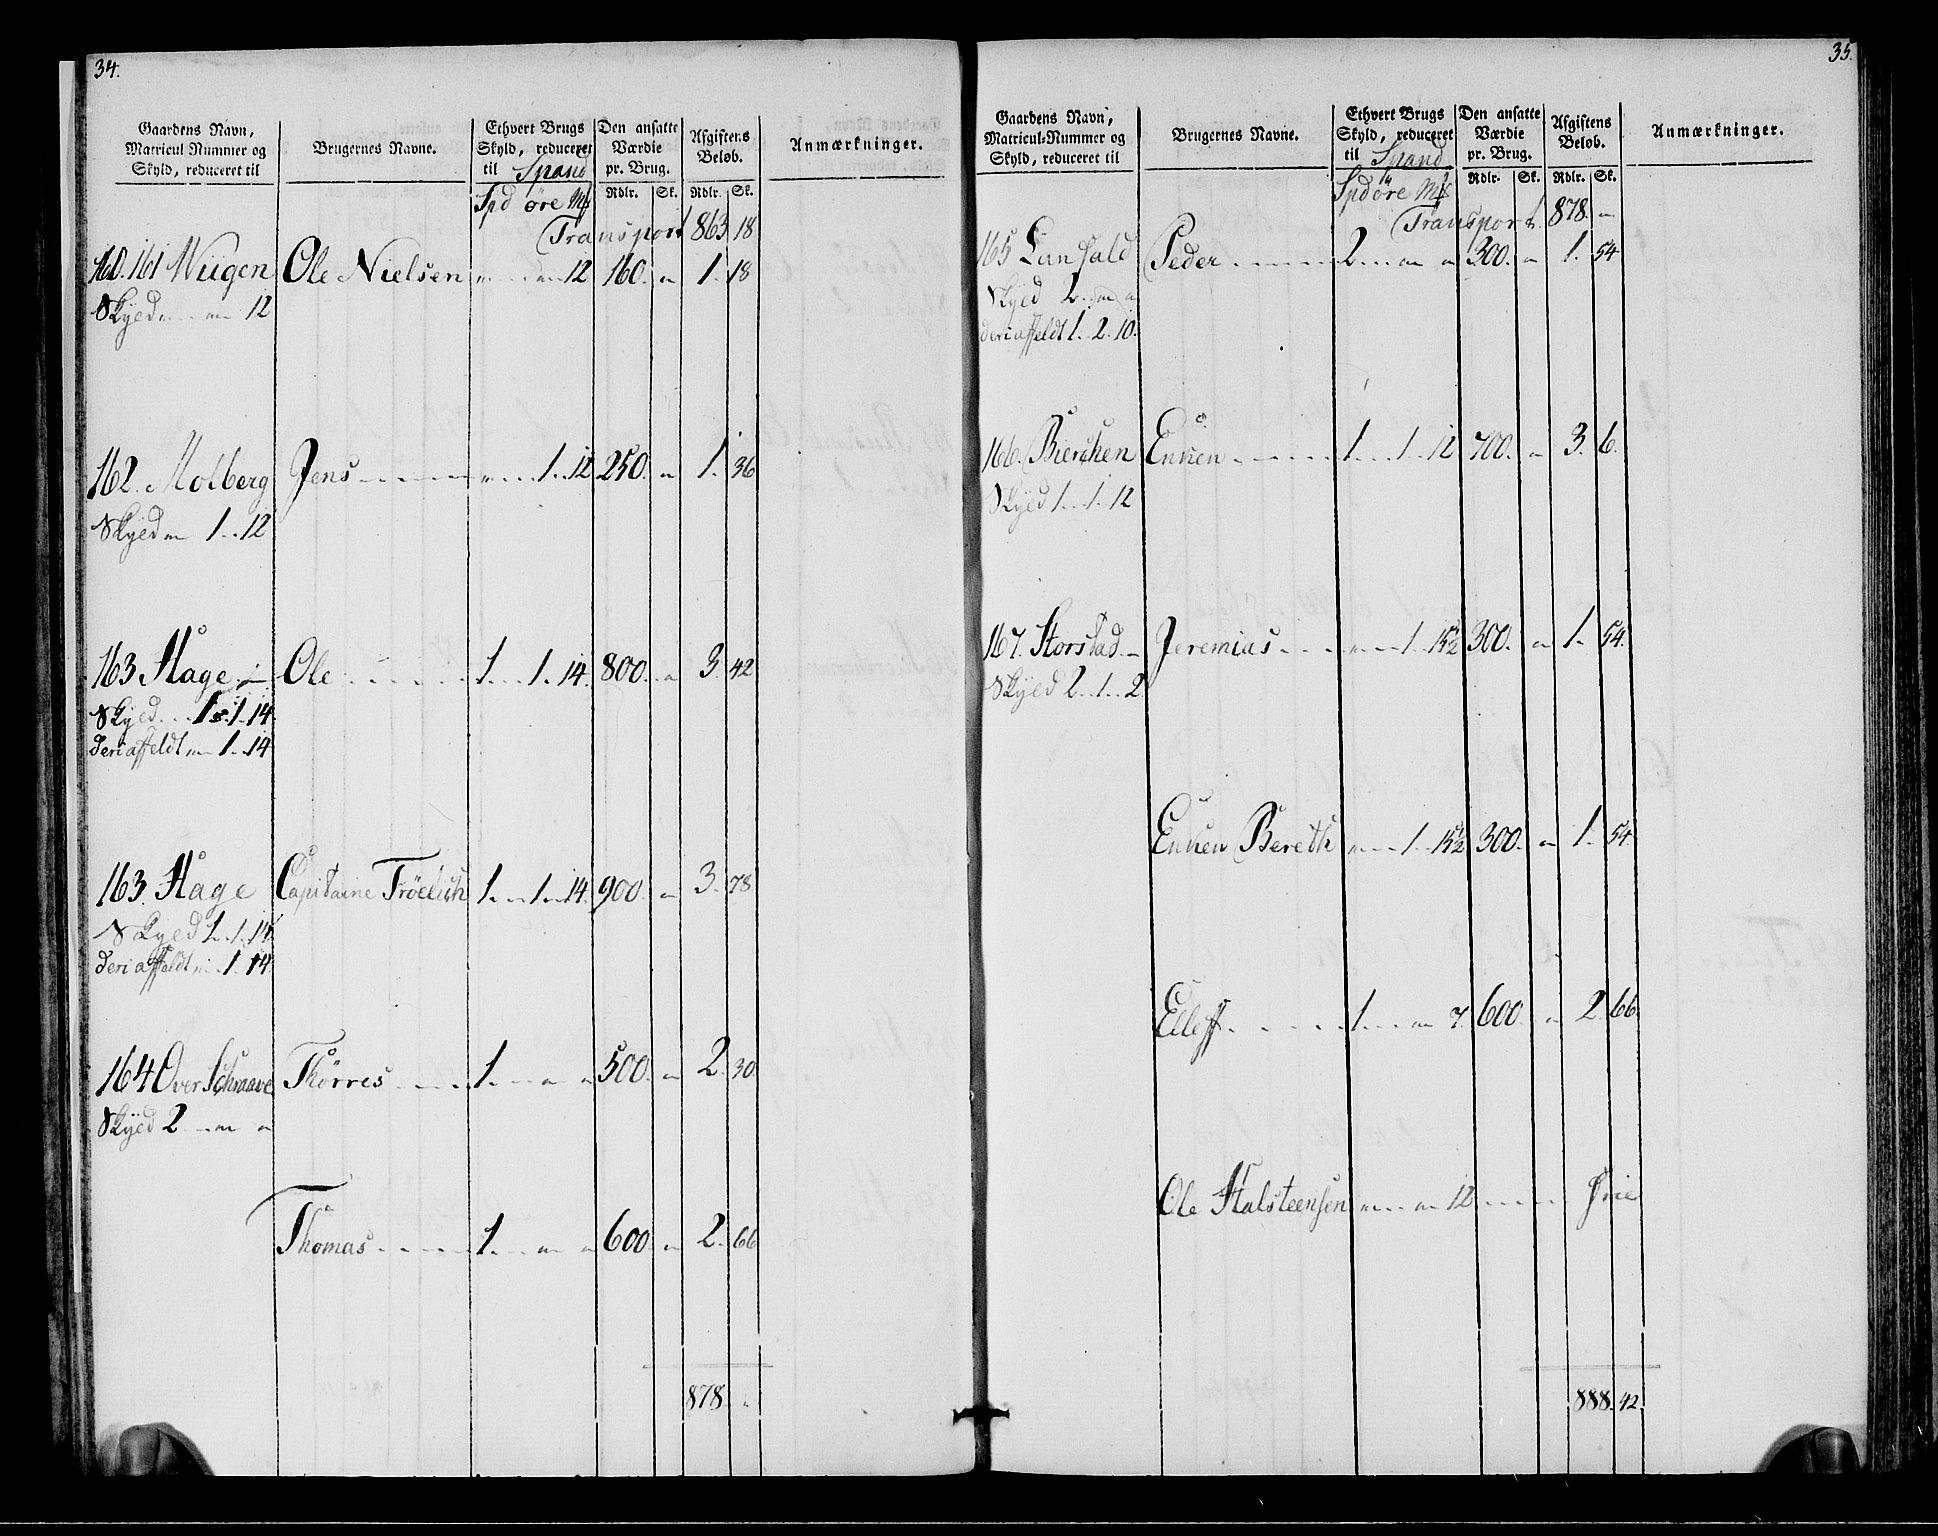 34.
Gaardens Navn, Matricul Nummer og Skyld, reduceret til
Brugernes Navne.
Ethvert Brugs Skyld, reduceret til Spand
Den ansatte Værdie pr. Brug.
Afgiftens Beløb.
Anmærkninger.
Spd öre Mk Rdlr. Sk. Rdlr. Sk.
Transport 863 18
160. 161 Wiigen Ole Nielsen 12 160. 1. 18
Skyed 12
162. Molberg Jens 1. 12 250. 1. 36
Skyed 1. 12
163 Hage Ole 1. 1. 14. 800. 3. 42
Skyed 1. 1. 14
deri affeldt 1. 14
163. Hage Capitaine Fröelich 1. 1. 14. 900. 3. 78
Skyed 1. 14
deri affeldt 1. 14
164 Over Schraave Thörres 1. 500. 2. 30.
Skyed 2
Thomas 1. 600. 2. 66
878.
35.
Gaardens Navn, Matricul-Nummer og Skyld, reduceret til
Brugernes Navne.
Ethvert Brugs Skyld, reduceret til Spand
Den ansatte Værdie pr. Brug.
Afgiftens Beløb.
Anmærkninger.
Spd öre Mk Rdlr. Sk. Rdlr. Sk.
Transport 878.
165 Peder 2 300. 1. 54
Skyed 2
deri affeldt 1. 2. 10.
166. Bierchen Enken 1 1. 12 700. 3. 6.
Skyed 1. 1. 12
167. Storstad Jeremias 1. 15½ 300. 1. 54.
Skyed 2. 1. 2
Enken Bereth 1. 15½ 300. 1. 54
Elleff 1. 7. 600. 2. 66
Ole Halsteensen 12
888. 42.